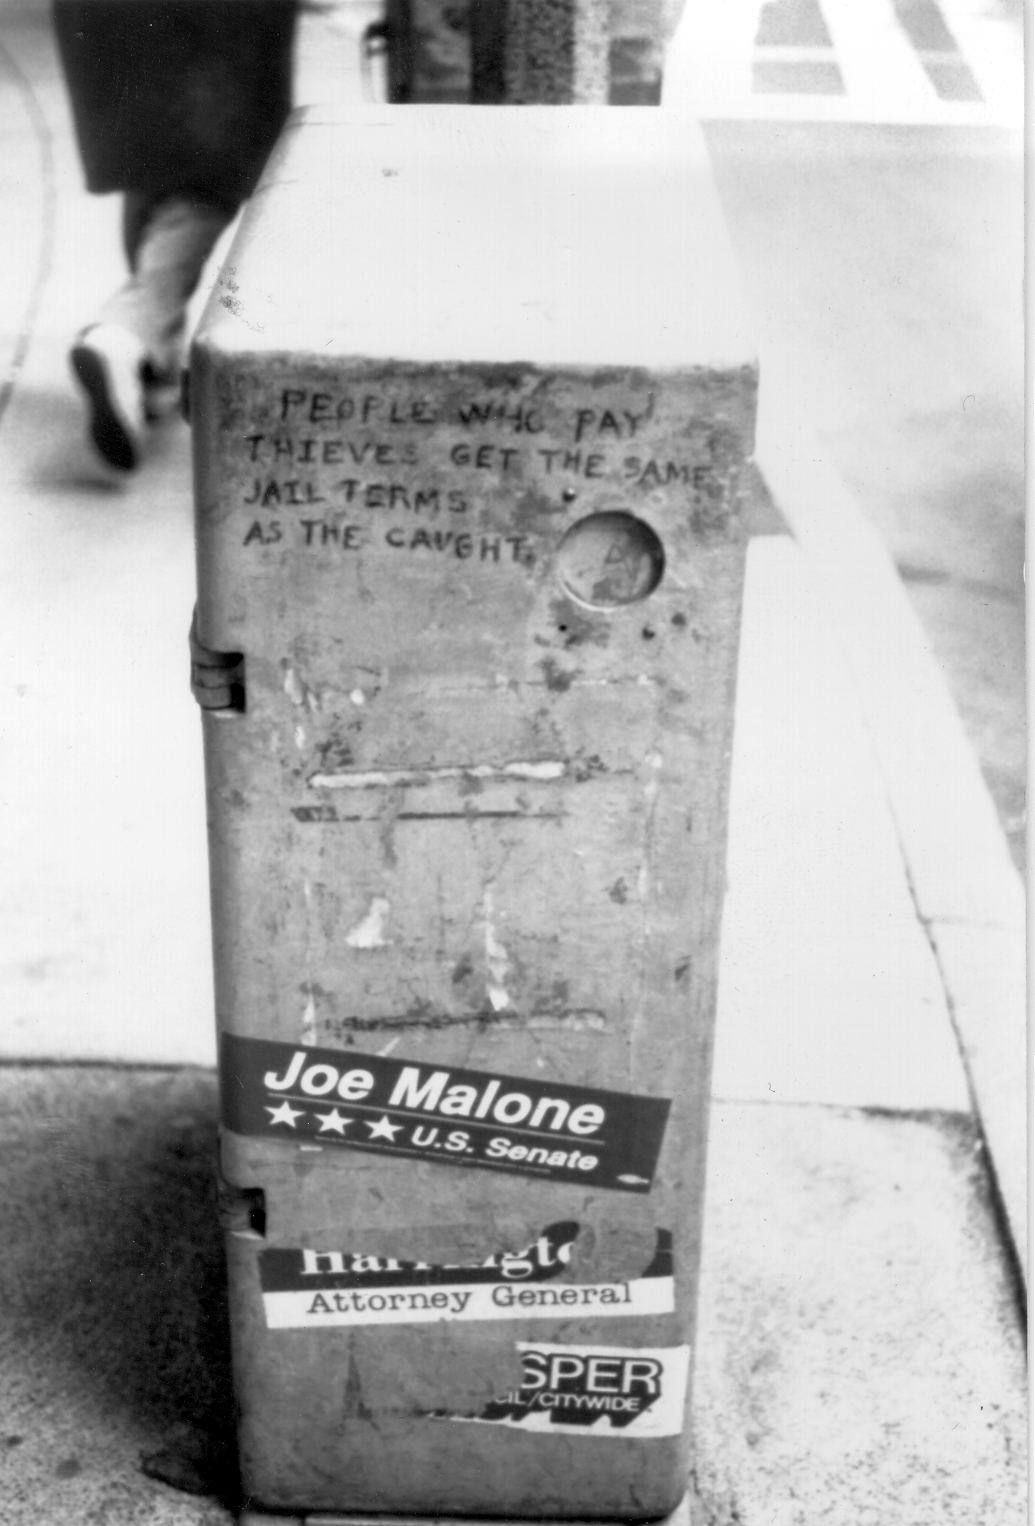 PEOPLE WHO PAY
THIEVES GET THE SAME
JAIL TERMS
AS THE CAUGHT.
Joe Malone
★★★ U.S. Senate
Harrington
Attorney General
SPER
CIL/CITYWIDE